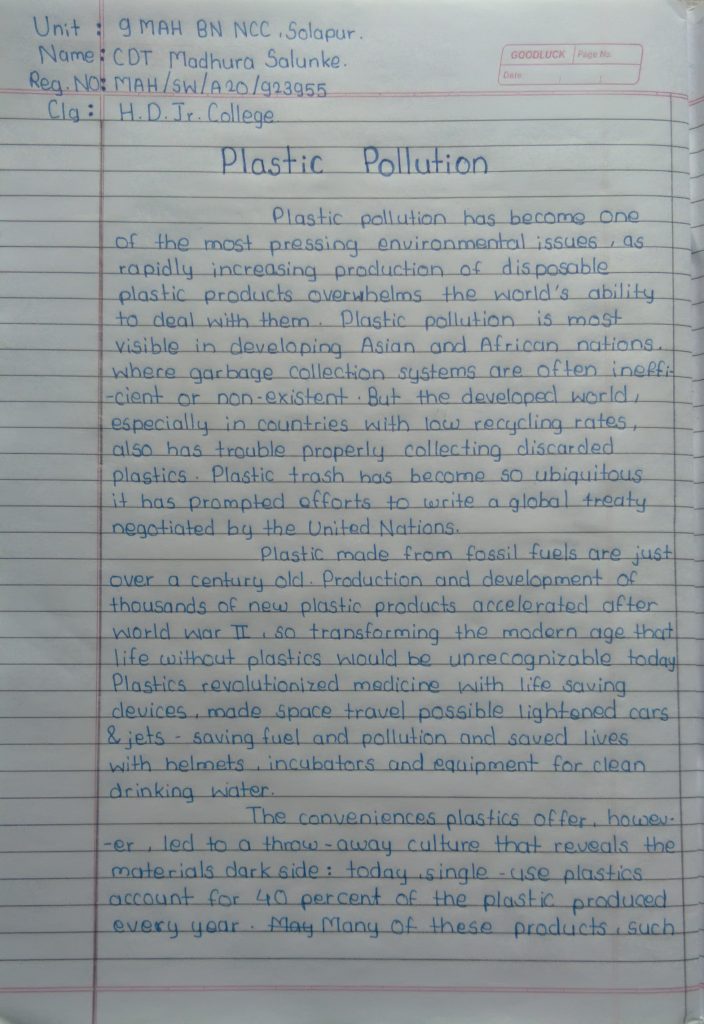 Unit : 9 MAH BN NCC, Solapur.
Name: CDT Madhura Salunke.
GOODLUCK Page No.
Date
Reg. NO: MAH/SW/A20/923955
Clg : H.D. Jr. College
Plastic Pollution
Plastic pollution has become one
of the most pressing environmental issues, as
rapidly increasing production of disposable
plastic products overwhelms the world's ability
to deal with them. Plastic pollution is most
visible in developing Asian and African nations.
where garbage collection systems are often ineffi-
-cient or non-existent. But the developed world,
especially in countries with low recycling rates,
also has trouble properly collecting discarded
plastics. Plastic trash has become so ubiquitous
it has prompted efforts to write a global treaty
negotiated by the United Nations.
Plastic made from fossil fuels are just
over a century old. Production and development of
thousands of new plastic products accelerated after
world war II, so transforming the modern age that
life without plastics would be unrecognizable today
Plastics revolutionized medicine with life saving
devices, made space travel possible lightened cars
& jets - saving fuel and pollution and saved lives
with helmets, incubators and equipment for clean
drinking water.
The conveniences plastics offer, howev-
-er, led to a throw-away culture that reveals the
materials dark side: today, single-use plastics
account for 40 percent of the plastic produced
every year. May Many of these products, such